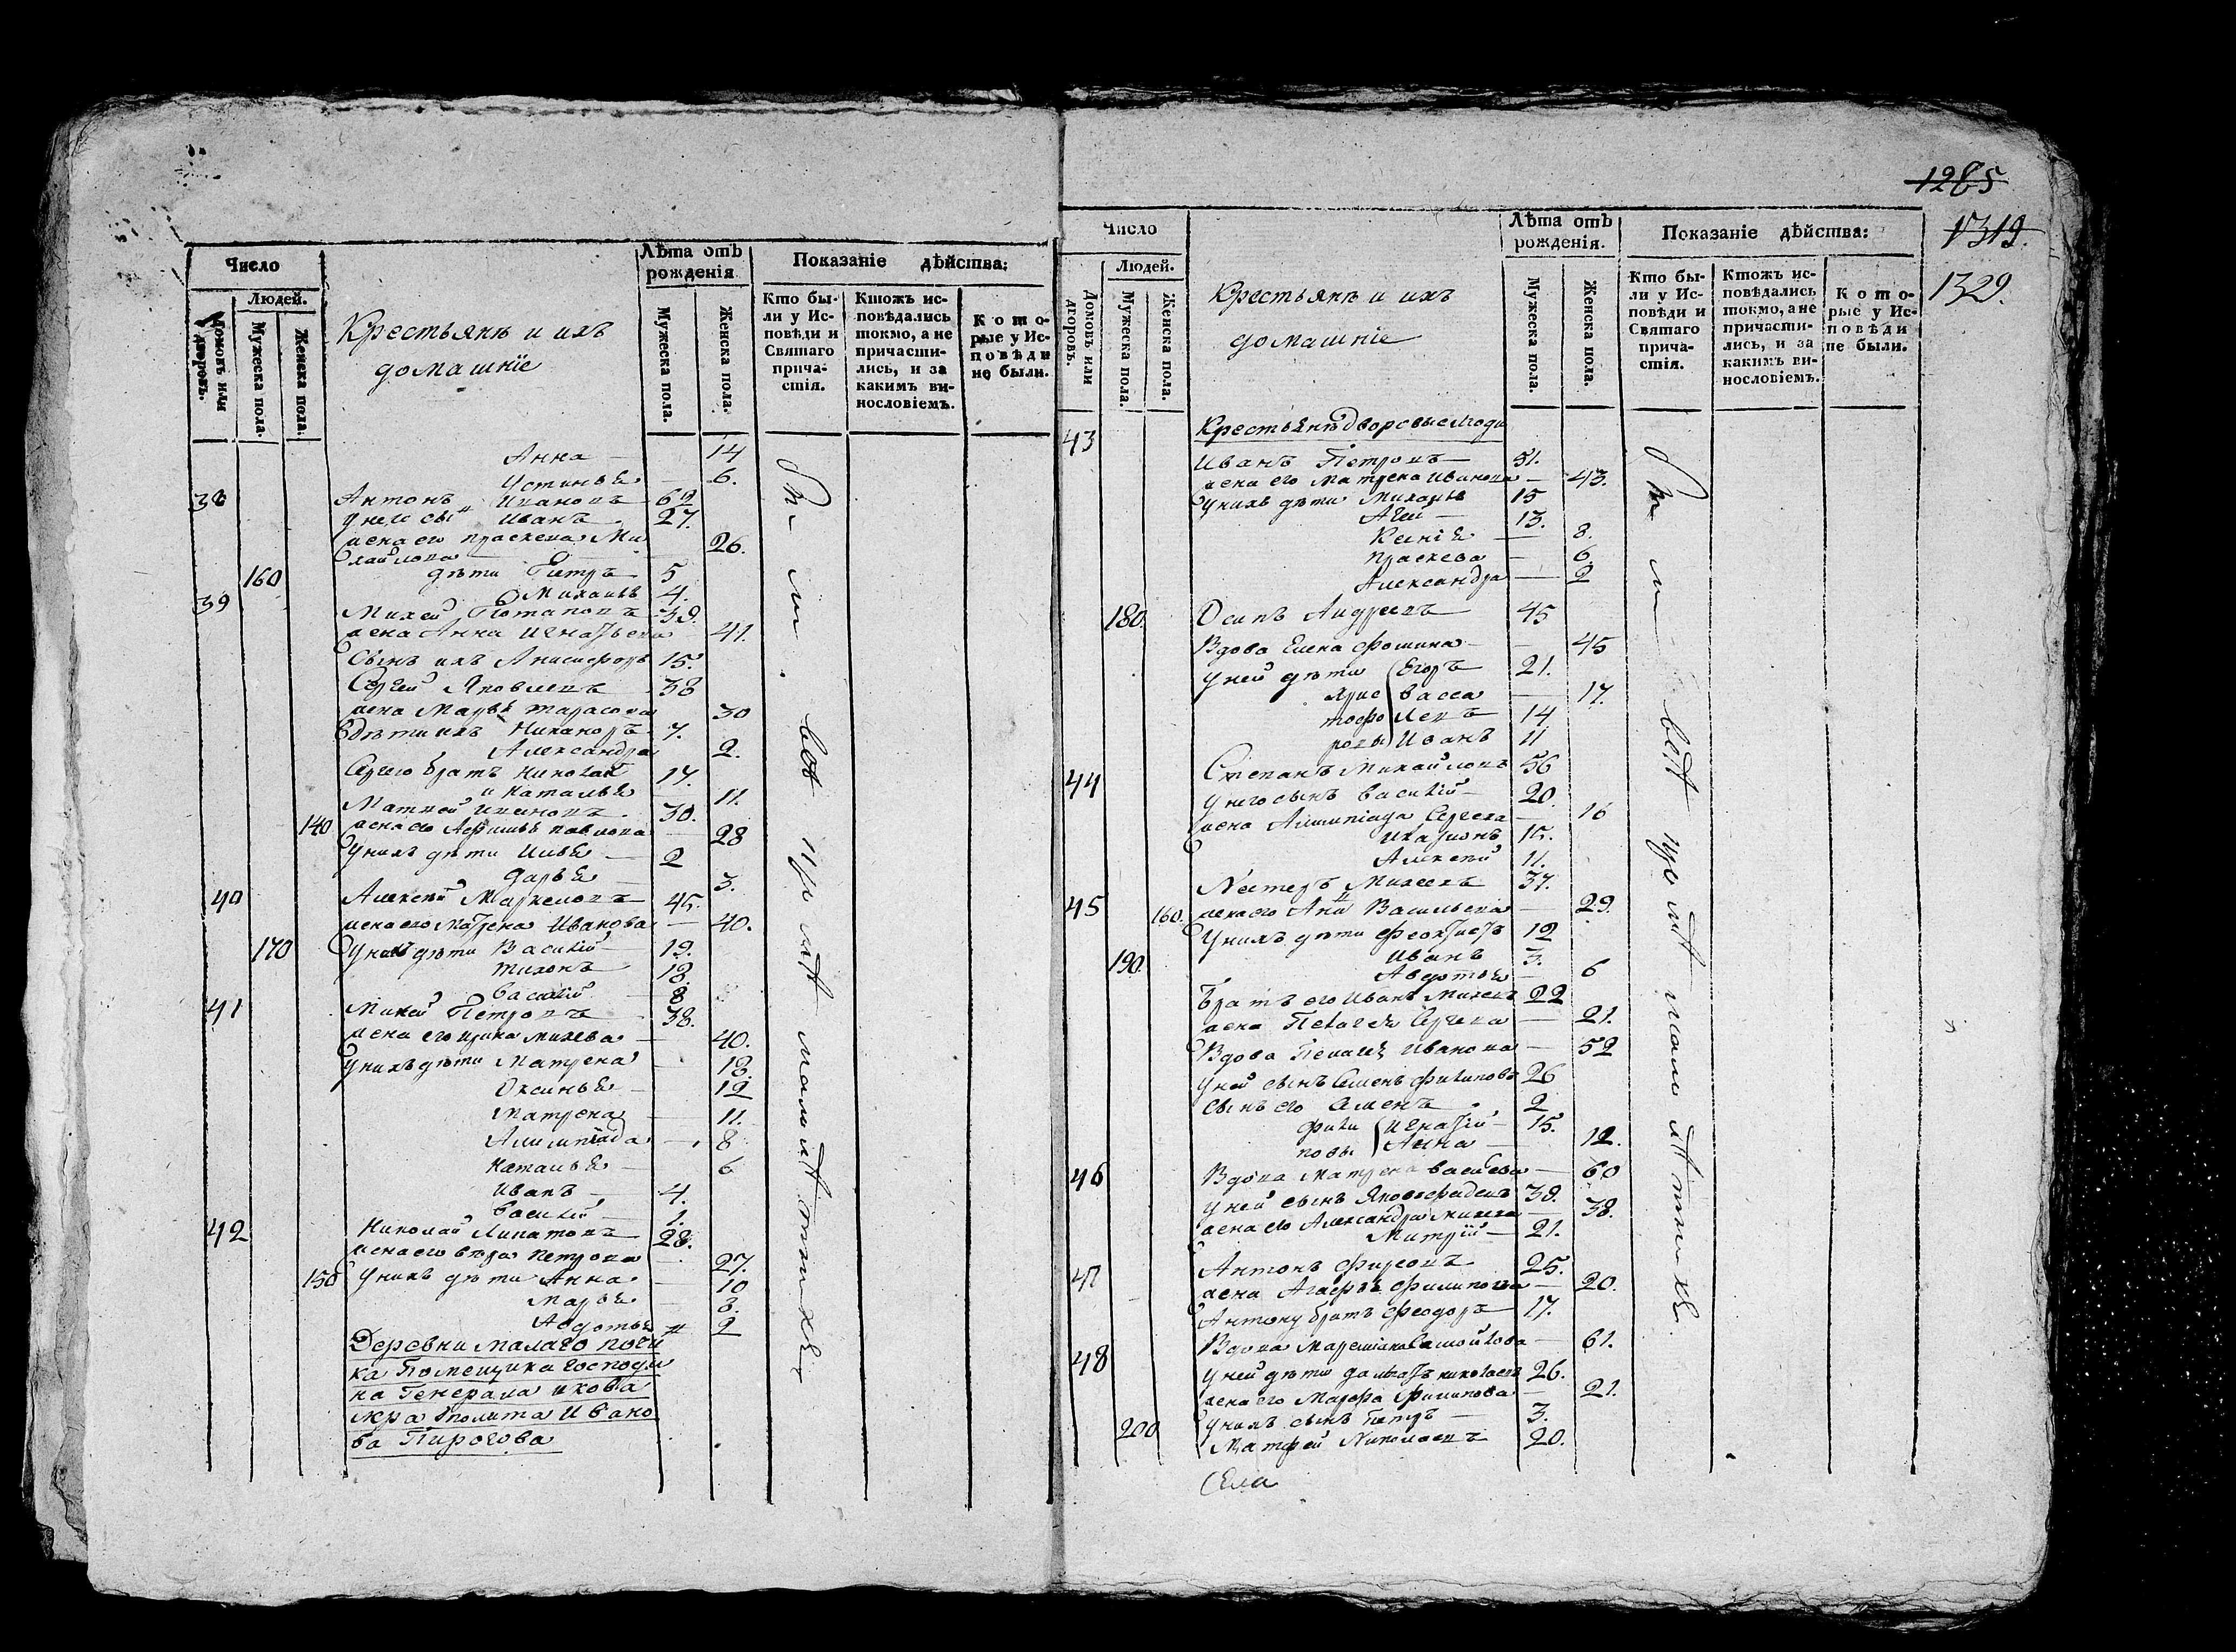 Число
Людей.
Домовъ или дворовъ.
Мужеска пола.
Женска пола.
Крестьянѣ и ихъ
домашніе
Лѣта отъ рожденія
Мужеска пола.
Женска пола.
Показаніе дѣйства:
Кто были у Исповѣди и Святаго причастія.
Ктожъ исповѣдались токмо, а не причастились, и за какимъ винословіемъ.
Которые у Исповѣди не были.
Анна — 14
Устинья — 6.
38 Антонъ Ивановъ 62
у него сынъ Иванъ 27.
жена его праскева Ми
хайлова — 26.
160 дѣти Петръ 5
Михаилъ 4.
39 Михей Потаповъ 39.
жена Анна Игнатьева 41.
Сынъ ихъ Анисифоръ 15.
Сергей Яковлевъ 38
жена Марья тарасова 30
дѣти ихъ Никаноръ 7.
Александра 2.
Сергею братъ Николай 17.
и Наталья 11.
Матвей 30.
140 жена его Афимья павлова 28
У нихъ дѣти Илья — 2
Дарья — 3.
40 Алексѣй Маркеловъ 45.
жена его Матрена Иванова — 40.
170 У нихъ дѣти Василій 19.
тихонъ 18.
василій 8
41 Михей Петровъ 38.
жена его ирина михева — 40.
у нихъ дѣти Матрена — 18.
Оксинья — 12
Матрена — 11.
Алимпіада — 8
Наталья — 6
Иванъ — 4.
василій — 1.
42 Николай Липатовъ 28.
жена его вѣра петрова — 27.
150 У нихъ дѣти Анна — 10
Марья — 3.
Авдотья — 2
Деревни малаго почи
ка Помещика господи
на Генерала и кова
лера Иполита Ивано
ва Пирогова
1285
1319.
1329.
Число
Людей.
Домовъ или дворовъ.
Мужеска пола.
Женска пола.
Крестьянѣ и ихъ
домашніе
Лѣта отъ рожденія.
Мужеска пола.
Женска пола.
Показаніе дѣйства:
Кто были у Исповѣди и Святаго причастія.
Ктожъ исповѣдались токмо, а не причастились, и за какимъ винословіемъ.
Которые у Исповѣди не были.
43 Крестьянѣ дворовые люди
Иванъ Петровъ 51.
жена его Матрена Иванова — 43.
У нихъ дѣти Михаилъ 15
Агей — 13.
Ксенія — 8.
праскева — 6
Александра — 2
180. Осипъ Андреевъ 45
Вдова Елена фомина — 45
У ней дѣти Егоръ 21.
Хрис васса — 17.
тофо Левъ 14
ровы Иванъ 11
44 Степанъ Михайловъ 56
У него сынъ василій 20.
жена Алимпіада Сергева 16
Иларионъ 15.
Алексѣй 11.
45 Нестеръ Михеевъ 37.
160. жена его Анна Васильева — 29.
У нихъ дѣти феоктистъ 12
190. Иванъ 3.
Авдотья — 6
братъ его Иванъ Михевъ 22
жена Пелагея Сергева — 21.
Вдова Пелагея Иванова — 52
У ней сынъ Семенъ филиповъ 26
Сынъ его Семенъ 2
фили Игнатій 15.
повы Анна — 12.
46 Вдова Матрена васильева — 60
У ней сынъ Яковъ фадеевъ 38.
жена его Александра михева — 38.
Митрій — 21.
47 Антонъ фирсовъ 25.
жена Агафья филипова — 20.
Антону братъ феодоръ 17.
48 Вдова Маремьяна Самойлова — 61.
У ней дѣти николаевъ 26.
жена его Марфа филипова — 21.
200 У нихъ сынъ Петръ — 3.
Матфей Николаевъ 20.
Села